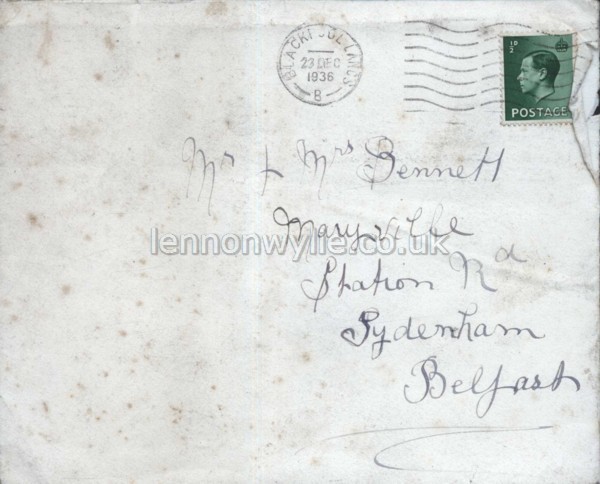 BLACKPOOL LANCS
23 DEC
1936
B
½D
POSTAGE
Mr & Mrs Bennett
Maryville
lennonwylie.co.uk
Station Rd
Sydenham
Belfast